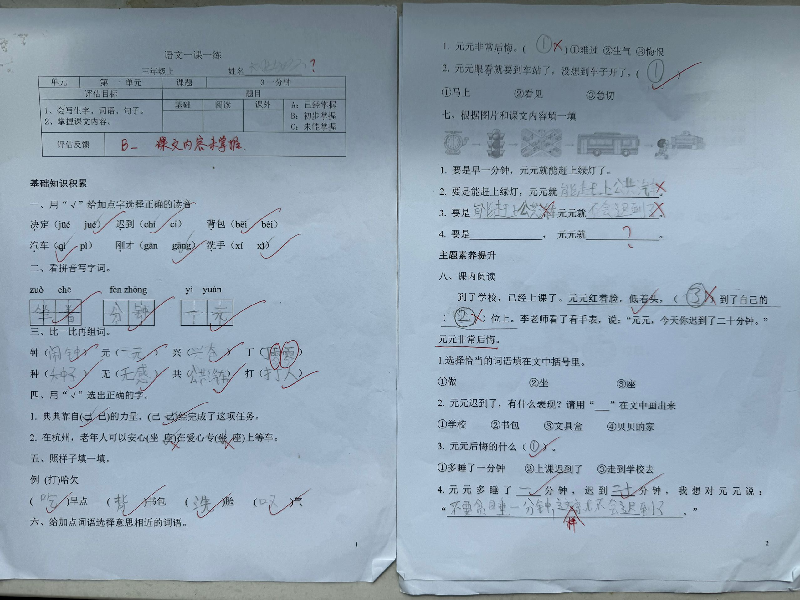 语文一课一练
三年级上 姓名 ?
单元 第一单元 课题 3 一分钟
评估目标 题目
1、会写生字、词语、句子。
2、掌握课文内容。
基础 阅读 课外
A：已经掌握
B：初步掌握
C：未能掌握
评估反馈 B- 课文内容未掌握
基础知识积累
一、用“√”给加点字选择正确的读音
决定（jué jué） 迟到（chí cí） 背包（bēi bèi）
汽车（qì pì） 刚才（gān gāng） 洗手（xí xǐ）
二、看拼音写字词。
zuò chē fēn zhōng yì yuán
坐 着 分 钟 一 元
三、比一比再组词。
钟（闹钟） 元（一元） 兴（ ） 丁（ ）
种（ ） 无（ ） 共（ ） 打（打人）
四、用“√”选出正确的字。
1. 共共靠自(己 已)的力量，(已 己)经完成了这项任务。
2. 在杭州，老年人可以安心(坐 座)在爱心专(坐 座)上等车。
五、照样子填一填。
例（打）哈欠
（吃）早点 （背）书包 （洗）脸 （ ）
六、给加点词语选择意思相近的词语。
1
1. 元元非常后悔。（ ① ）①难过 ②生气 ③悔恨
2. 元元眼看就要到车站了，没想到车子开了。（ ① ）
①马上 ②看见 ③急切
七、根据图片和课文内容填一填
1. 要是早一分钟，元元就能赶上绿灯。
2. 要是能赶上绿灯，元元就能赶上公共汽车
3. 要是能赶上公共汽车 元元就不会迟到了
4. 要是 ， 元元就 ? 。
主题素养提升
八、课内阅读
到了学校，已经上课了。元元红着脸，低着头，（ ③ ）到了自己的
（ ② ）位上。李老师看了看手表，说：“元元，今天你迟到了二十分钟。”
元元非常后悔。
1.选择恰当的词语填在文中括号里。
①做 ②坐 ③座
2. 元元迟到了，有什么表现？请用“＿”在文中画出来
①学校 ②书包 ③文具盒 ④贝贝的家
3. 元元后悔的什么（ ① ）。
①多睡了一分钟 ②上课迟到了 ③走到学校去
4. 元元多睡了 一 分钟，迟到 二十 分钟，我想对元元说：
“不要贪睡一分钟，这样就不会迟到了 。”
样
2